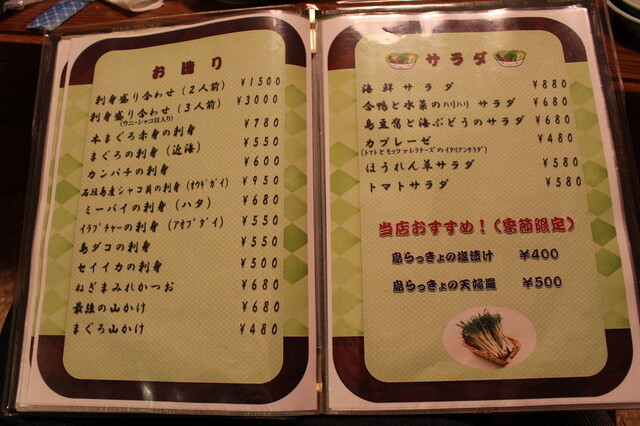 お造り
刺身盛り合わせ（２人前） ¥1500
刺身盛り合わせ（３人前） ¥3000
(ウニ・シャコ貝入り)
本まぐろ赤身の刺身 ¥780
まぐろの刺身（近海） ¥550
カンパチの刺身 ¥600
石垣島産シャコ貝の刺身（オウギガイ） ¥950
ミーバイの刺身（ハタ） ¥680
イラブチャーの刺身（アオブダイ） ¥550
島ダコの刺身 ¥550
セイイカの刺身 ¥500
ねぎまみれかつお ¥680
最強の山かけ ¥680
まぐろ山かけ ¥480
サラダ
海鮮サラダ ¥880
合鴨と水菜のハリハリサラダ ¥680
島豆腐と海ぶどうのサラダ ¥680
カプレーゼ ¥480
(トマトとモッツァレラチーズのイタリアンサラダ)
ほうれん草サラダ ¥580
トマトサラダ ¥580
当店おすすめ！（季節限定）
島らっきょの塩漬け ¥400
島らっきょの天婦羅 ¥500